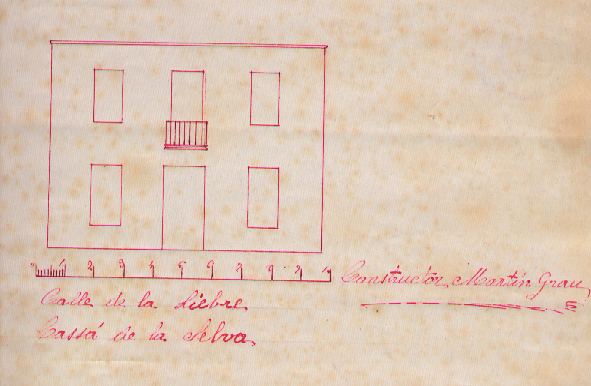 Constructor, Martín Grau
Calle de la Liebre
Cassá de la Selva